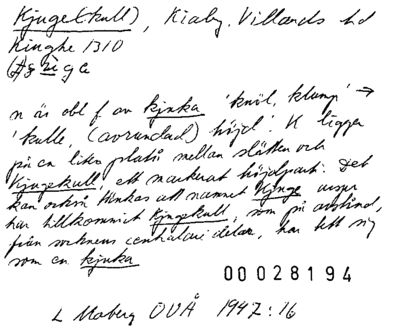 Kjuge(kull), Kiaby. Villands hd
Kinghe 1310
n är obl f av kjuka 'knöl, klump' →
'kulle, (avrundad) höjd'. K ligger
på en liten platå mellan slätten och
Kjugekull, ett markerat höjdparti. Det
kan också tänkas att namnet Kjuge
har tillkommit Kjugekull, som på avstånd,
från socknens centralare delar, har tett sig
som en kjuka
00028194
L Moberg OUÅ 1947:16